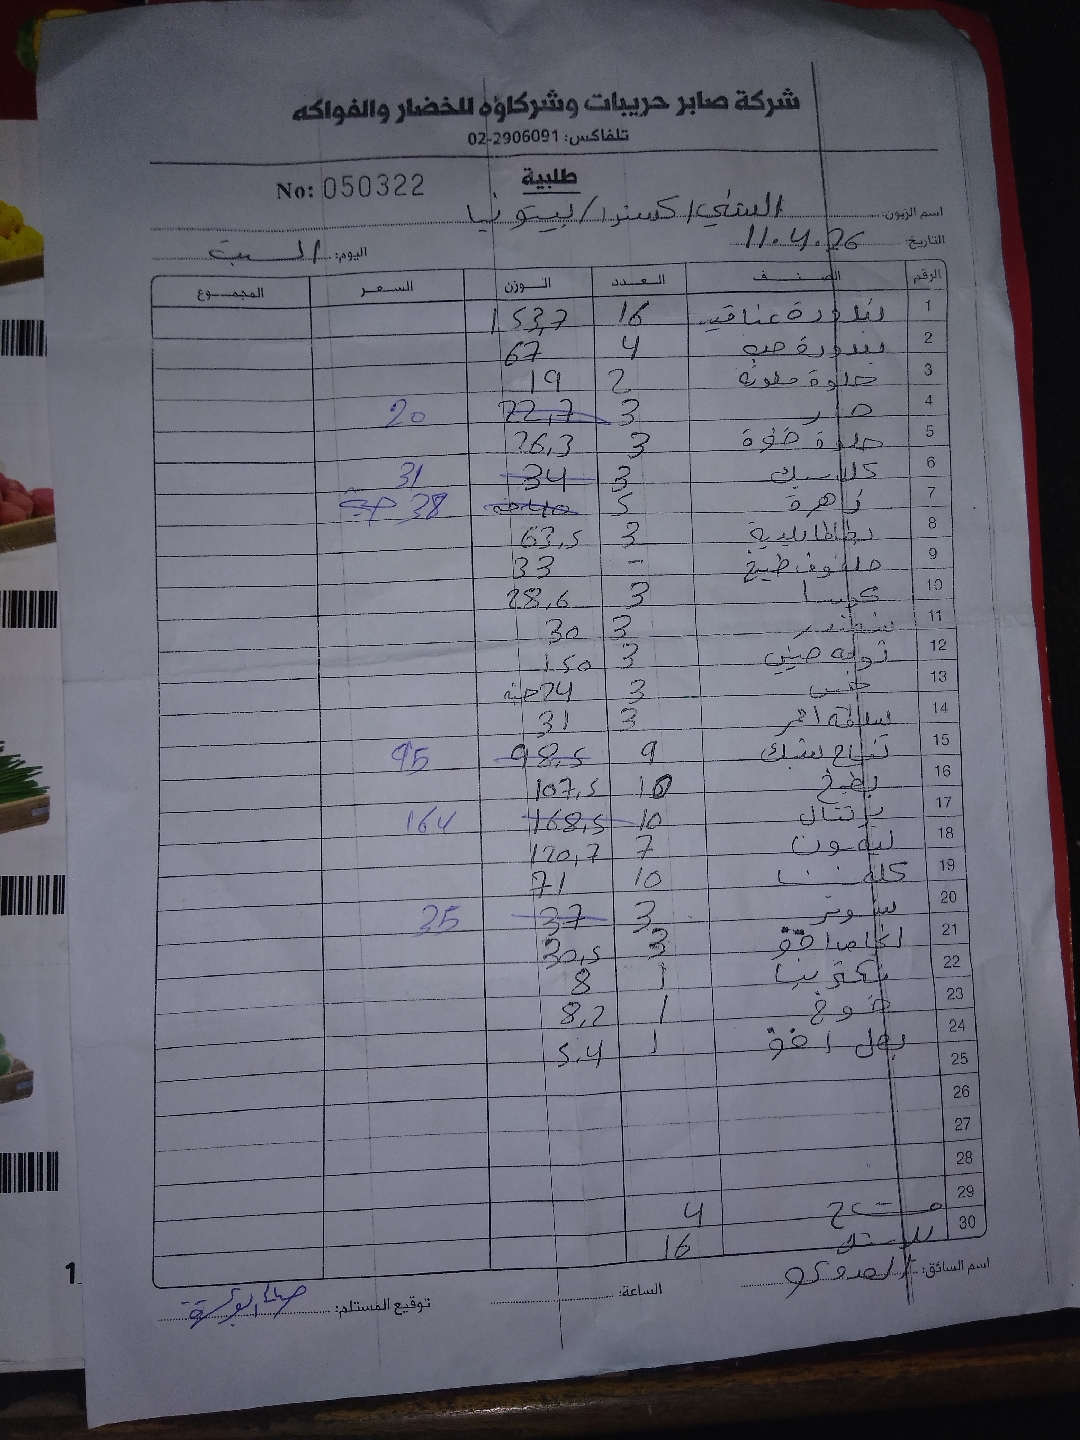 شركة صابر حريبات وشركاؤه للخضار والفواكه
تلفاكس: 02-2906091
طلبية
No: 050322
اسم الزبون: الشني اكسترا / بيتونيا
التاريخ: 11.4.26
اليوم: السبت
الرقم الصنف العدد الوزن السعر المجموع
1 بندورة عناقيد 16 153,7
2 بندورة حب 4 67
3 حلوة ملونة 2 19
4 حار 3 22,7 20
5 حلوة 3 26,3
6 كلاسيك 3 34 31
7 زهرة 5 40 حبة 38 حبة
8 بطاطا بلدية 3 63,5
9 ملفوف طبيخ - 33
10 كوسا 3 28,6
11 شمندر 3 30
12 تومه صيني 3 150
13 خس 3 24 حبة
14 بصل احمر 3 31
15 تفاح سبك 9 98,5 95
16 بطيخ 10 107,5
17 برتقال 10 168,5 164
18 ليمون 7 120,7
19 كلمنتينا 10 71
20 شومر 3 37 35
21 3 30,5
22 نكترينا 1 8
23 خوخ 1 8,2
24 بصل 1 5.4
25
26
27
28
29 4
30 16
اسم السائق:
الساعة:
توقيع المستلم:
1